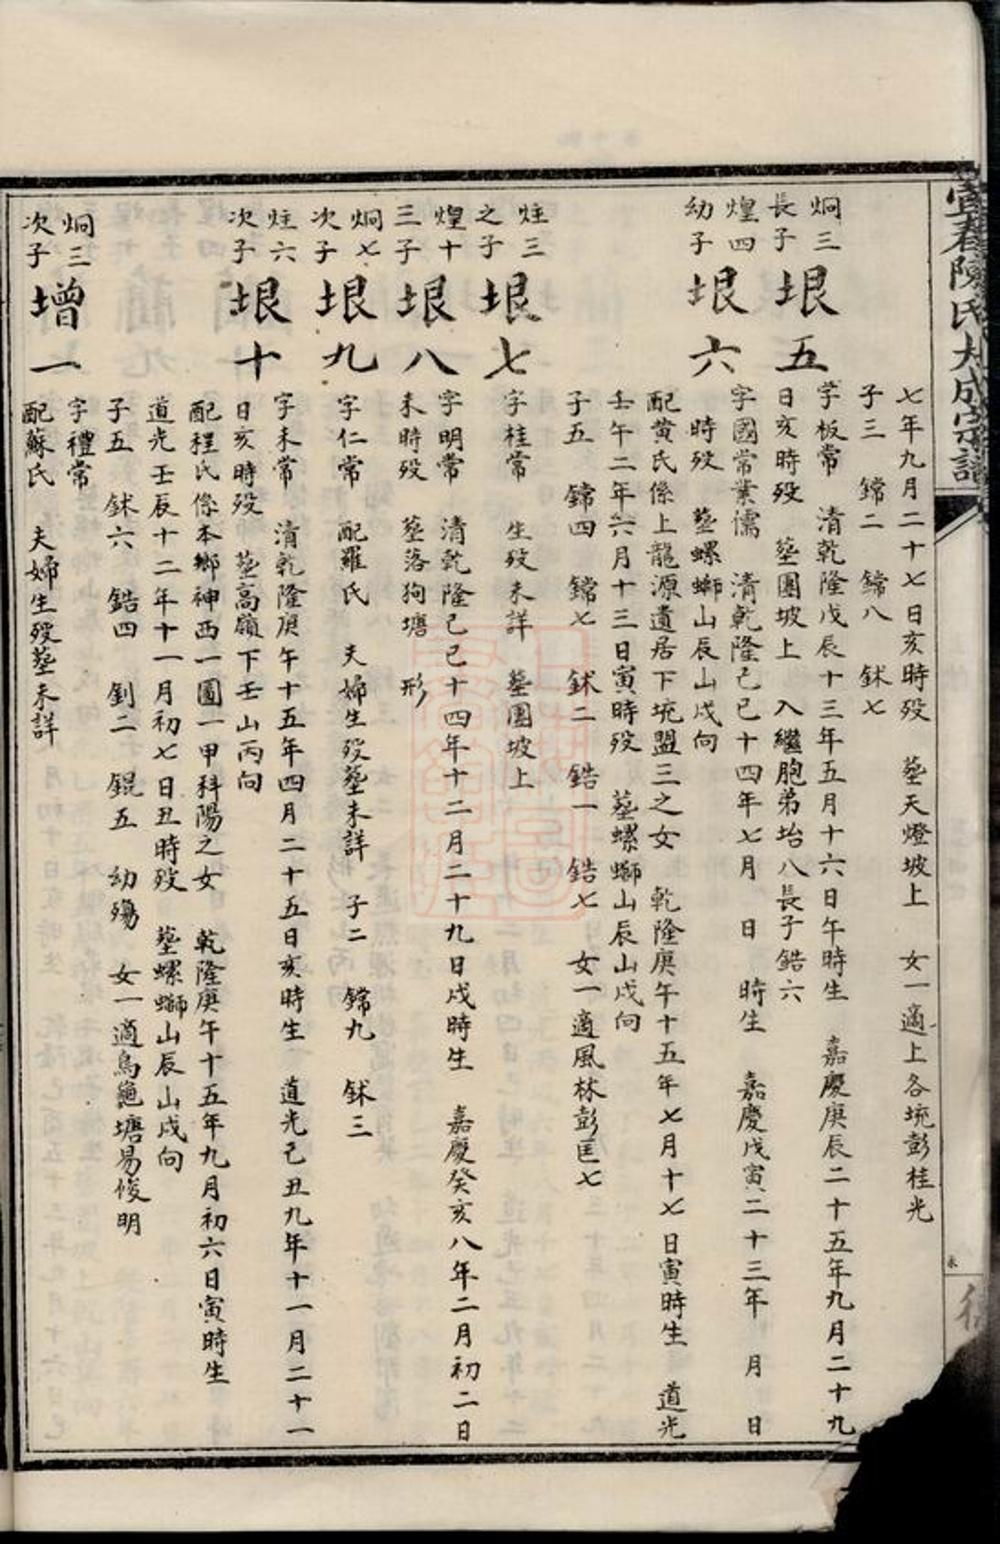 宜春陳氏大成宗譜
七年九月二十七日亥時歿 墓天燈坡上 女一適上各坑彭桂光
子三 鐺二 鐺八 鉥七
炯三長子 垠五 字板常 清乾隆戊辰十三年五月十六日午時生 嘉慶庚辰二十五年九月二十九
日亥時歿 墓圑坡上 入繼胞弟坮八長子鋯六
煌四幼子 垠六 字國常業儒 清乾隆己巳十四年七月 日 時生 嘉慶戊寅二十三年 月 日
時歿 墓螺螄山辰山戌向
配黄氏係上龍源遺居下坑盟三之女 乾隆庚午十五年七月十七日寅時生 道光
壬午二年六月十三日寅時歿 墓螺螄山辰山戌向
子五 鐺四 鐺七 鉥二 鋯一 鋯七 女一適風林彭匡七
炷三之子 垠七 字桂常 生歿未詳 墓圑坡上
煌十三子 垠八 字明常 清乾隆己巳十四年十二月二十九日戌時生 嘉慶癸亥八年二月初二日
未時歿 墓落狗塘 形
炯七次子 垠九 字仁常 配羅氏 夫婦生歿墓未詳 子二 鐺九 鉥三
炷六次子 垠十 字未常 清乾隆庚午十五年四月二十五日亥時生 道光己丑九年十一月二十一
日亥時歿 墓高嶺下壬山丙向
配程氏係本鄉神西一圖一甲科陽之女 乾隆庚午十五年九月初六日寅時生
道光壬辰十二年十一月初七日丑時歿 墓螺螄山辰山戌向
子五 鉥六 鋯四 釗二 錕五 幼殤 女一適烏龜塘易俊明
炯三次子 增一 字禮常
配蘇氏 夫婦生歿墓未詳